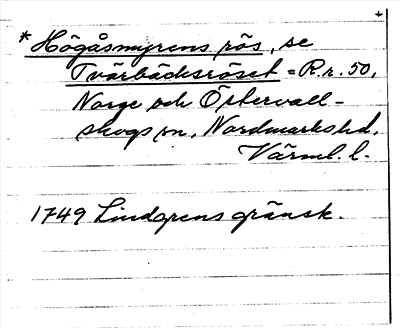 * Högåsmyrens rös, se
Tvärbäcksröset = R.r. 50,
Norge och Östervall-
skogs sn, Nordmarks hd,
Värml. l.
1749 Lindgrens gränsk.